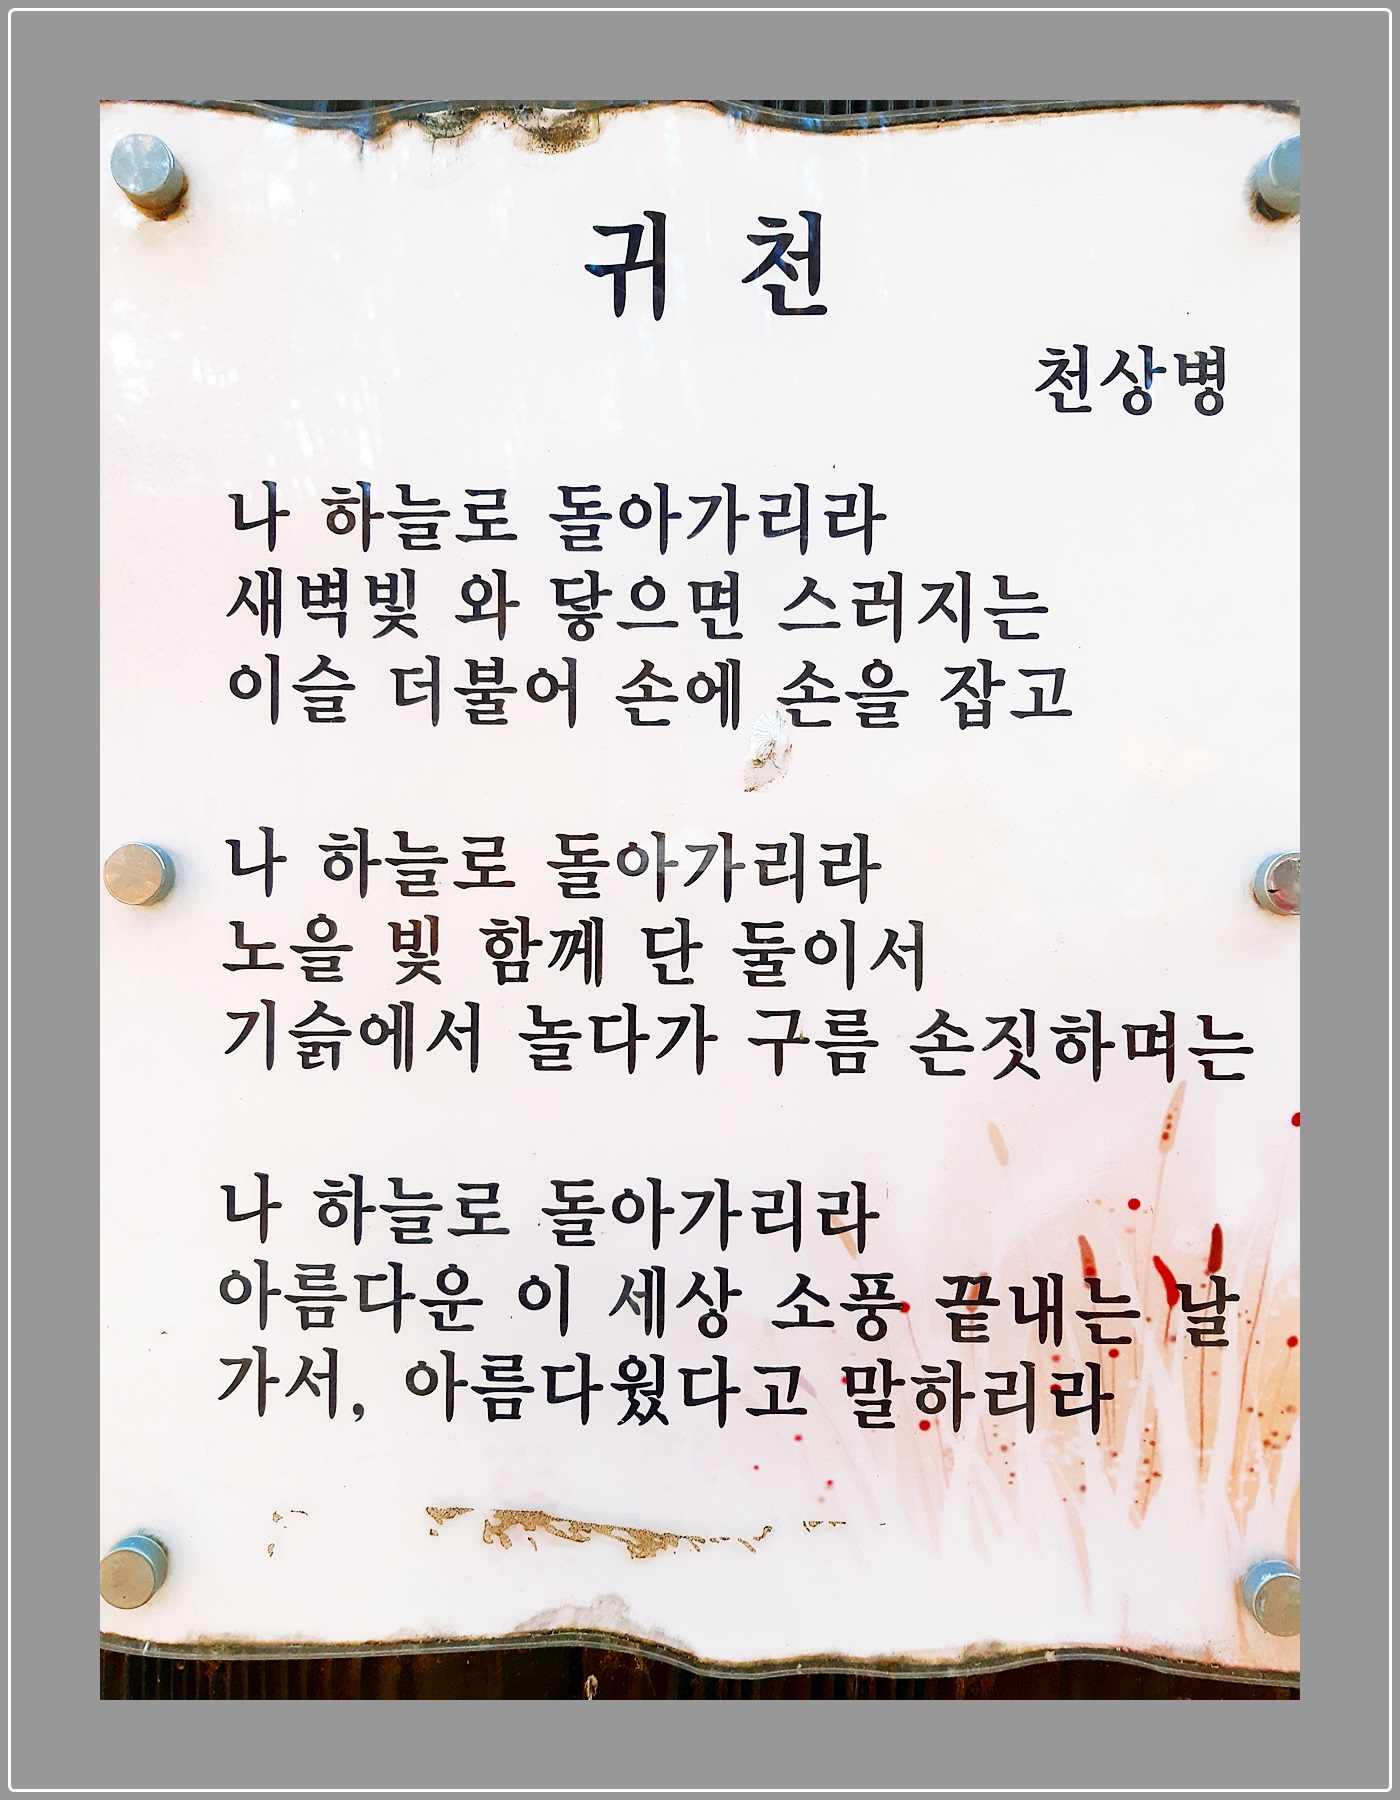 귀 천
천상병
나 하늘로 돌아가리라
새벽빛 와 닿으면 스러지는
이슬 더불어 손에 손을 잡고
나 하늘로 돌아가리라
노을 빛 함께 단 둘이서
기슭에서 놀다가 구름 손짓하며는
나 하늘로 돌아가리라
아름다운 이 세상 소풍 끝내는 날
가서, 아름다웠다고 말하리라